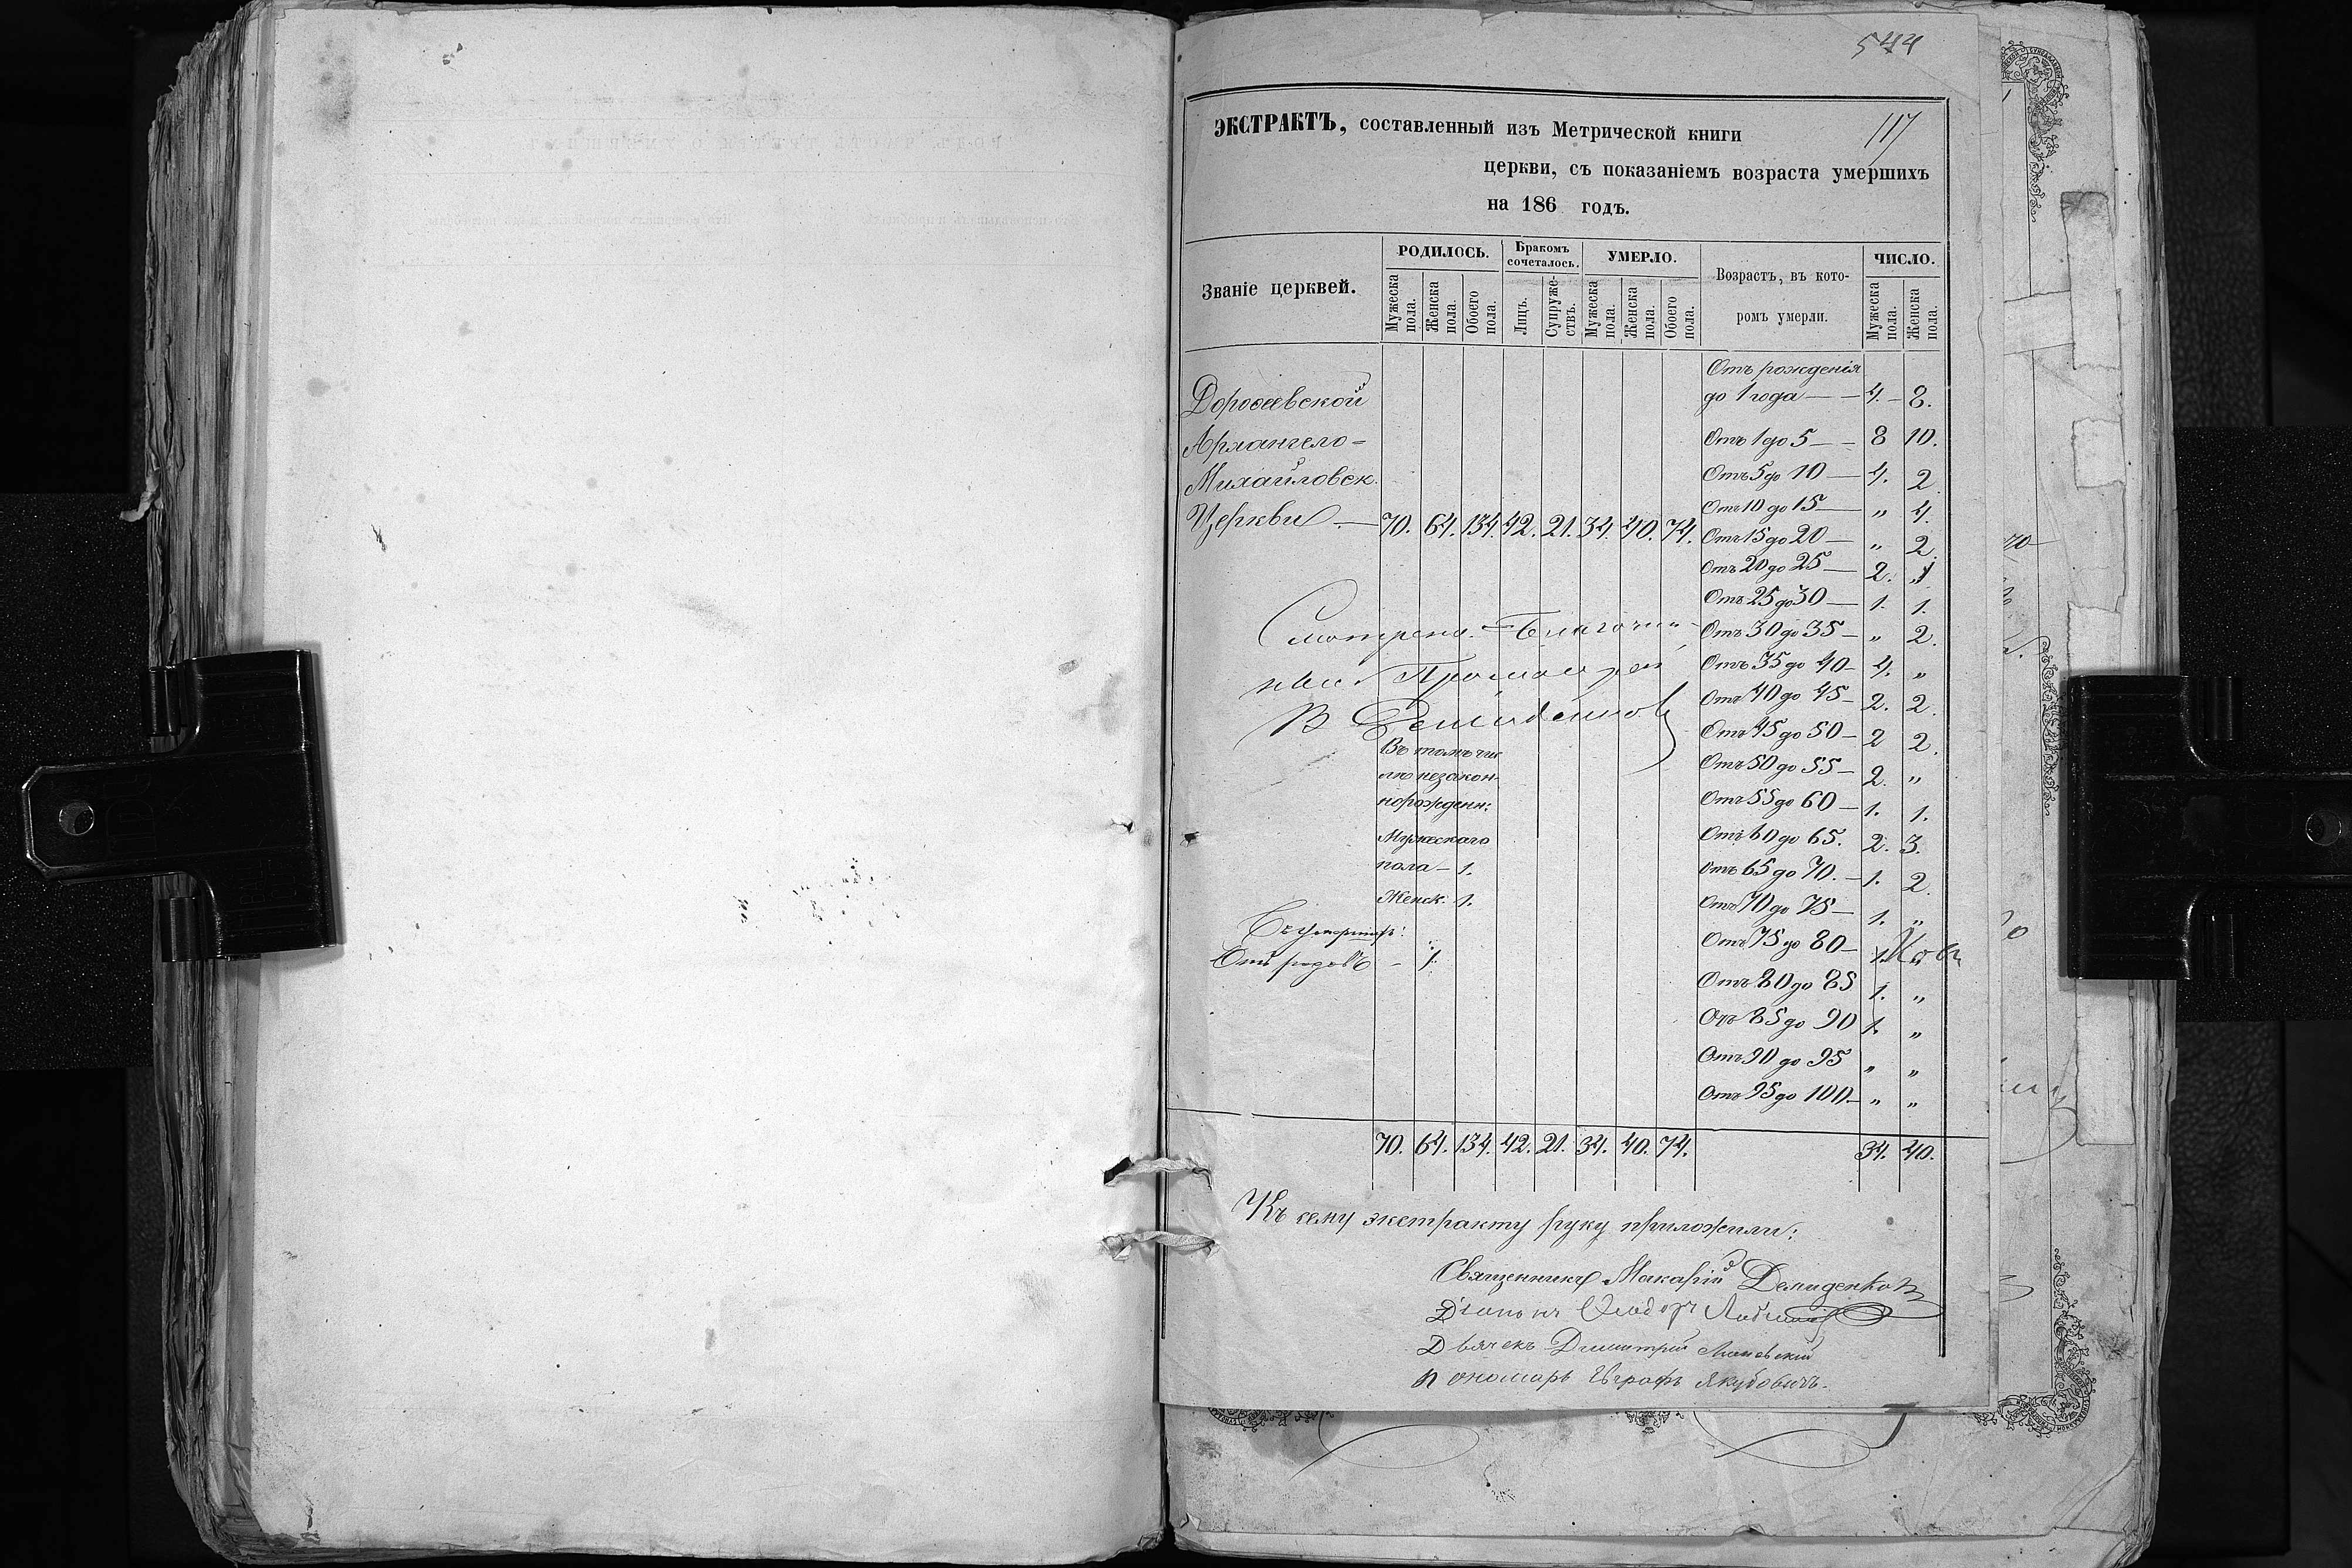 544
117
ЭКСТРАКТЪ, составленный изъ Метрической книги
церкви, съ показаніемъ возраста умершихъ
на 186 годъ.
Званіе церквей.
РОДИЛОСЬ.
Бракомъ сочеталось.
УМЕРЛО.
Возрастъ, въ кото-
ромъ умерли.
ЧИСЛО.
Мужеска пола.
Женска пола.
Обоего пола.
Лицъ.
Супруже-ствъ.
Мужеска пола.
Женска пола.
Обоего пола.
Мужеска пола.
Женска пола.
Отъ рожденія
до 1 года — — 4. — 8.
Доровеевской
Архангело-
Михайловск.
Церкви — 70. 64. 134. 42. 21. 34. 40. 74.
Отъ 1 до 5 — — 8 10.
Отъ 5 до 10 — 4. 2
Отъ 10 до 15 — „ 4.
Отъ 15 до 20 — „ 2
Отъ 20 до 25 — 2. 1
Отъ 25 до 30 — 1. 1.
Отъ 30 до 35 — „ 2.
Отъ 35 до 40 — 4. „
Отъ 40 до 45 — 2. 2.
Отъ 45 до 50 — 2 2.
Отъ 50 до 55 — 2. „
Отъ 55 до 60 — 1. 1.
Отъ 60 до 65. 2. 3.
Отъ 65 до 70. — 1. 2.
Отъ 70 до 75 — 1. „
Отъ 75 до 80 —
Отъ 80 до 85 1. „
Отъ 85 до 90 1. „
Отъ 90 до 95 „ „
Отъ 95 до 100 — „ „
Въ томъ чи
слѣ незакон-
норожденн:
Мужескаго
пола — 1.
Женск. 1.
Отъ родовъ — 1
70. 64. 134. 42. 21. 34. 40. 74. 34. 40.
Къ сему экстракту руку приложили:
Священникъ Макарій Демиденковъ
Діаконъ
Дьячекъ Димитрій
Пономарь Евграфъ Якубовичъ.